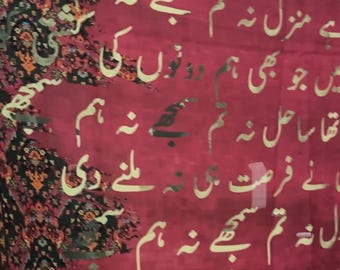 ہے منزل نہ تم سمجھے نہ
میں جو بھی ہم دونوں کی کشتی
تھا ساحل نہ تم سمجھے نہ ہم سمجھے
نے فرصت ہی نہ ملنے دی
نہ تم سمجھے نہ ہم